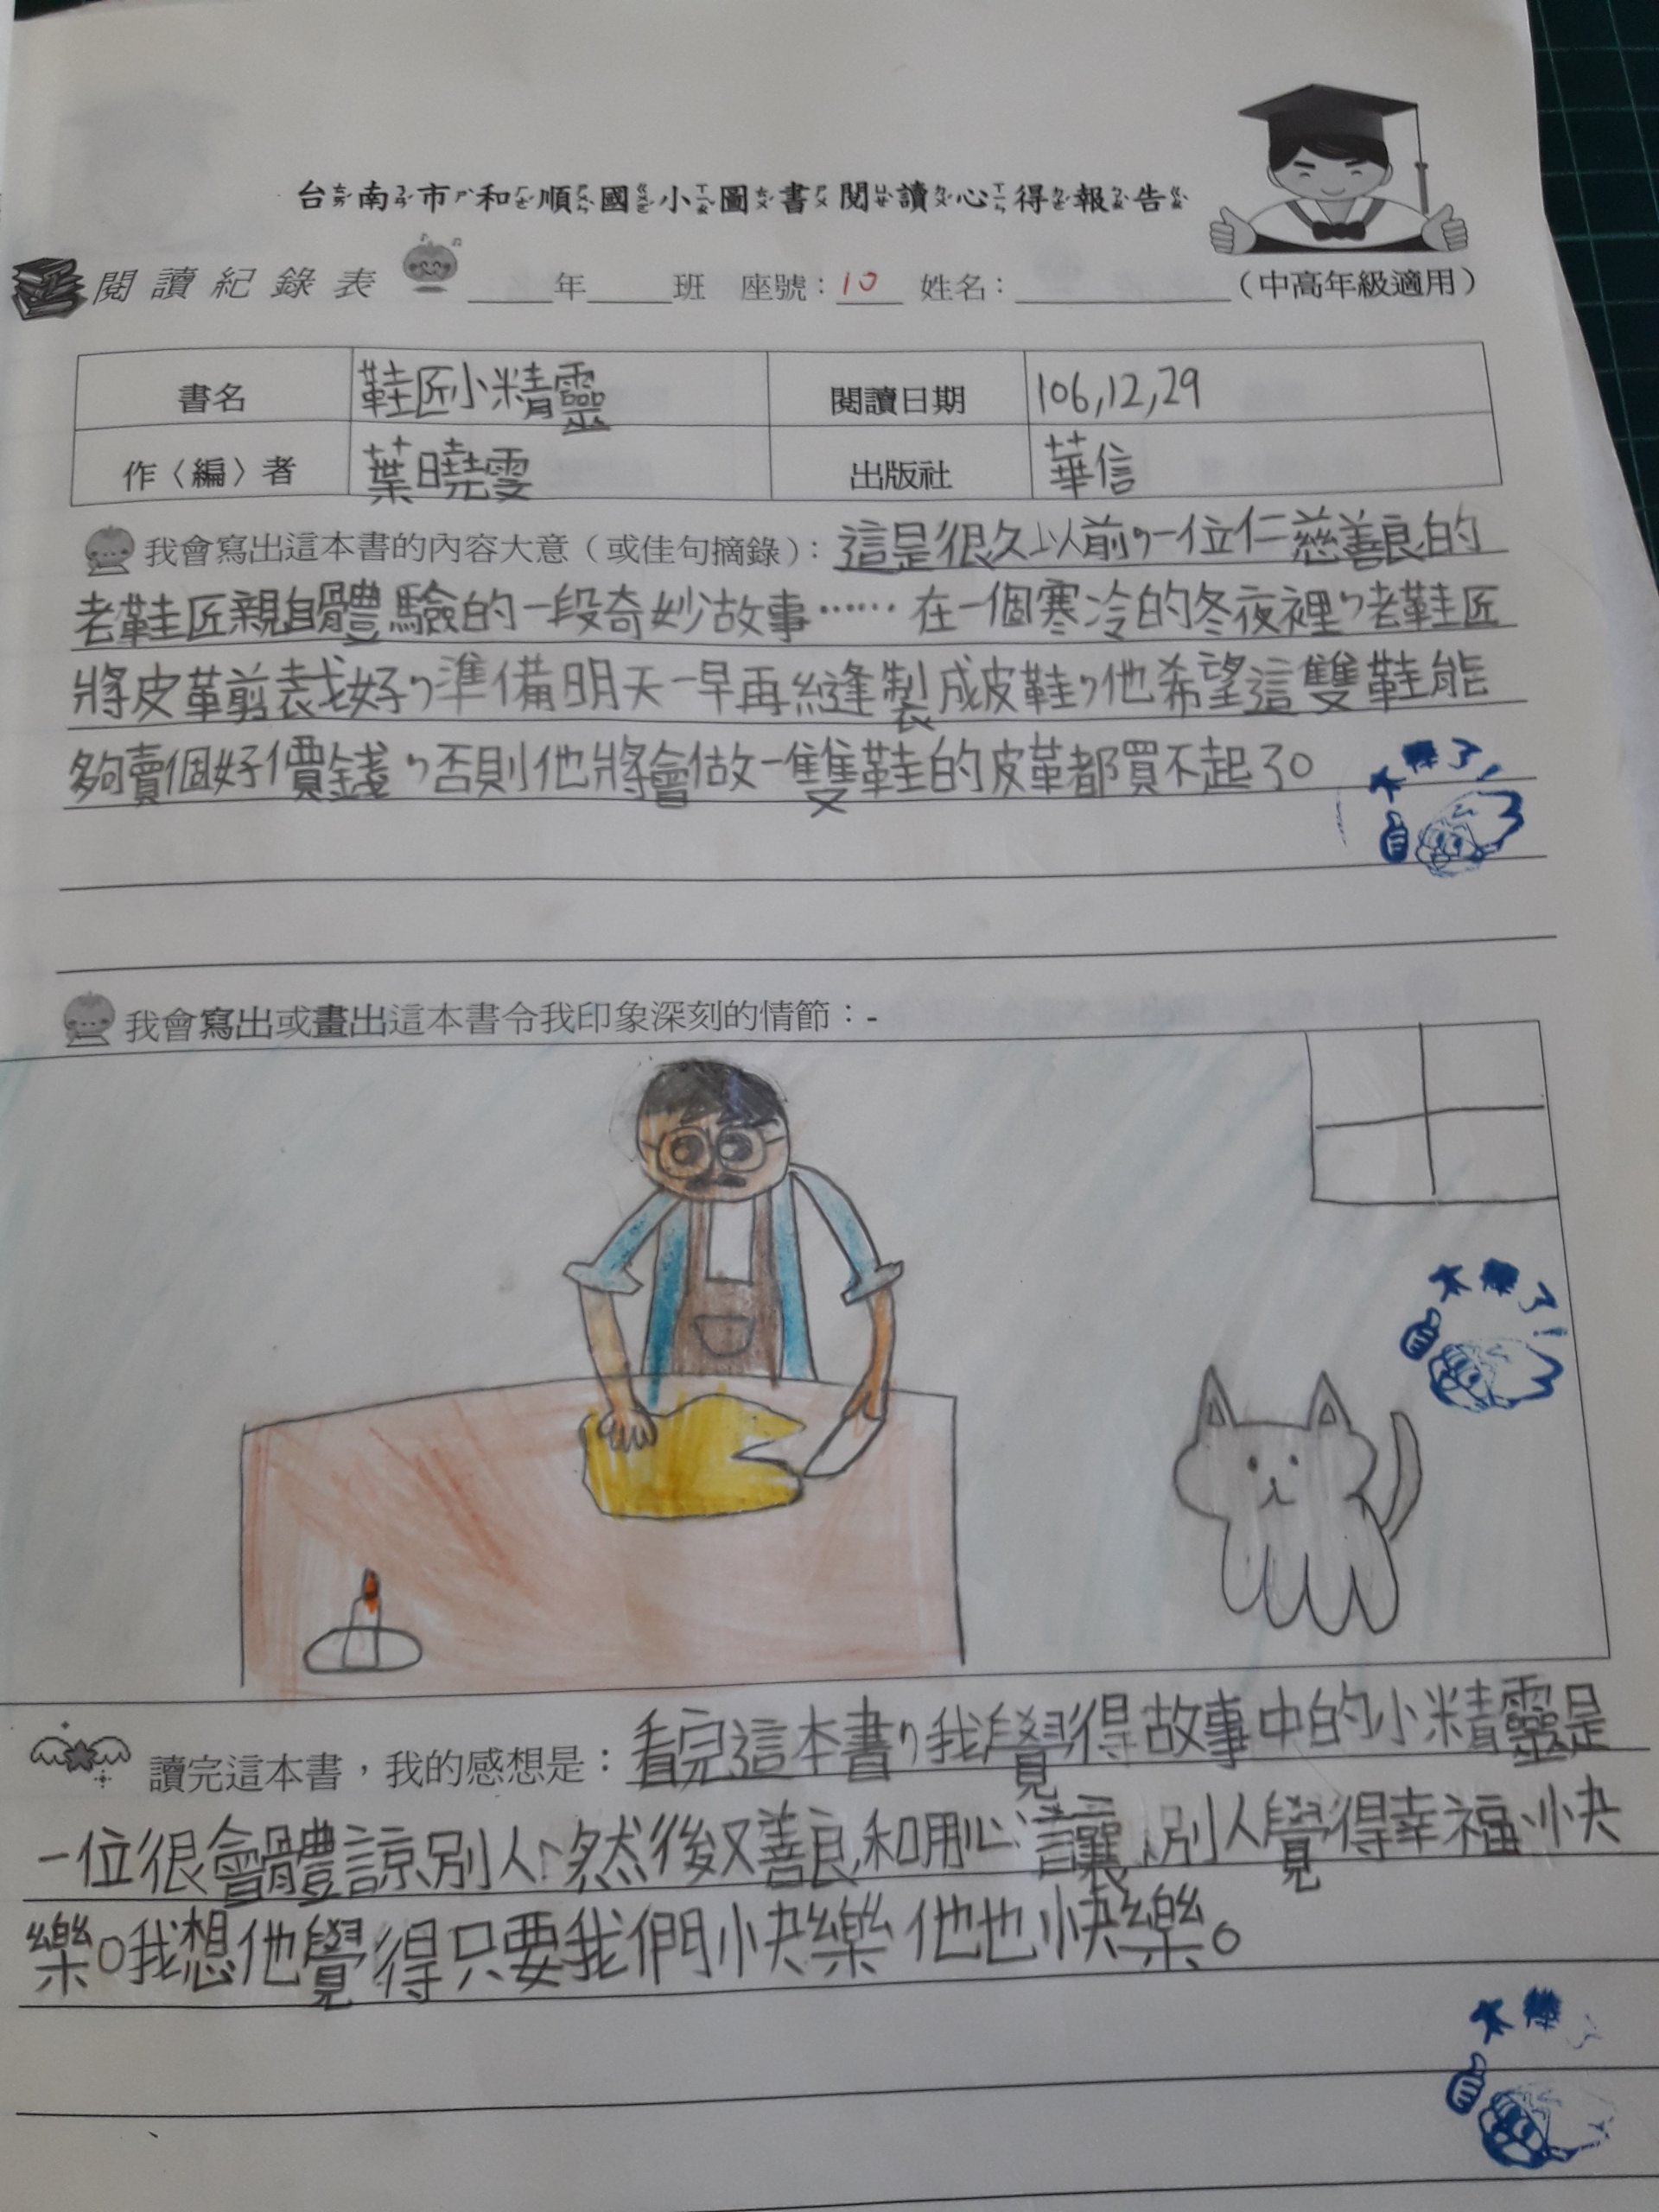 台南市和順國小圖書閱讀心得報告
閱讀紀錄表 ____年____班 座號：10 姓名：________（中高年級適用）
書名 鞋匠小精靈 閱讀日期 106,12,29
作〈編〉者 葉曉雯 出版社 華信
我會寫出這本書的內容大意（或佳句摘錄）：這是很久以前，一位仁慈善良的
老鞋匠親自體驗的一段奇妙故事……在一個寒冷的冬夜裡，老鞋匠
將皮革剪裁好，準備明天一早再縫製成皮鞋，他希望這雙鞋能
夠賣個好價錢，否則他將會做一雙鞋的皮革都買不起了。
太棒了！
我會寫出或畫出這本書令我印象深刻的情節：-
太棒了！
讀完這本書，我的感想是：看完這本書，我覺得故事中的小精靈是
一位很會體諒別人，然後又善良和用心讓別人覺得幸福、快
樂。我想他覺得只要我們快樂他也快樂。
太棒